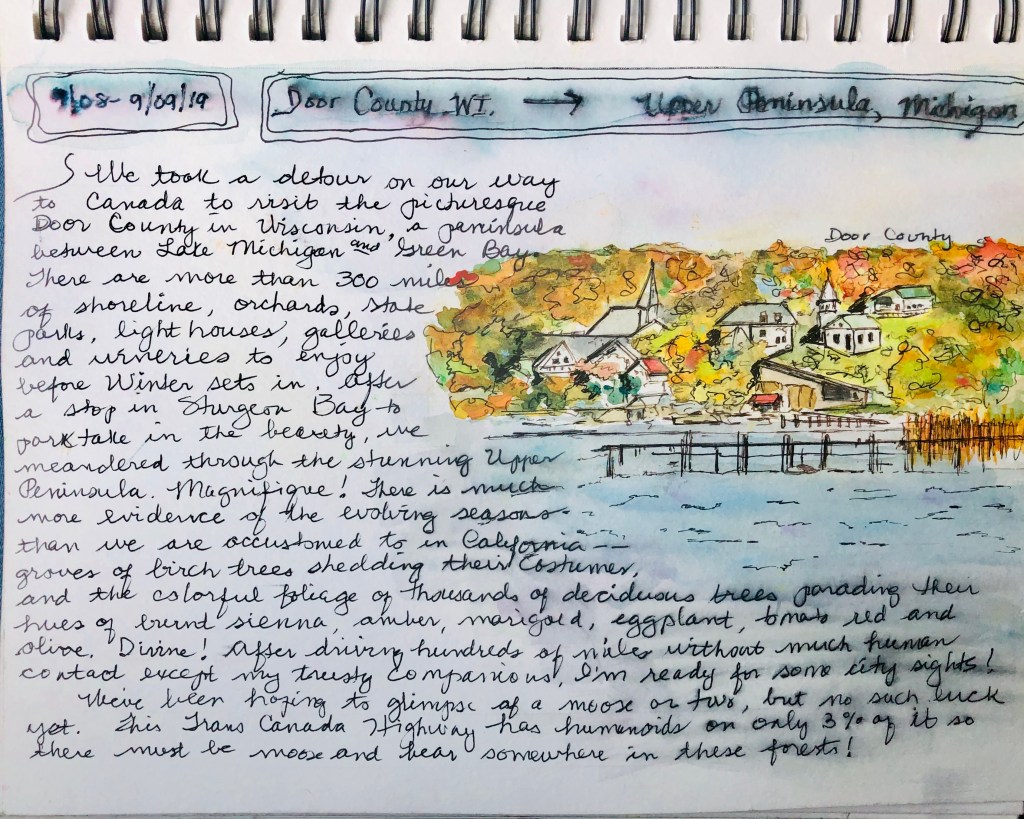 9/08- 9/09/19
Door County WI. → Upper Peninsula, Michigan
We took a detour on our way
to Canada to visit the picturesque
Door County in Wisconsin, a peninsula
between Lake Michigan and Green Bay.
There are more than 300 miles
of shoreline, orchards, state
parks, light houses, galleries
and wineries to enjoy
before Winter sets in. After
a stop in Sturgeon Bay to
parktake in the beauty, we
meandered through the stunning Upper
Peninsula. Magnifique! There is much
more evidence of the evolving seasons
than we are accustomed to in California —
groves of birch trees shedding their costumes,
and the colorful foliage of thousands of deciduous trees parading their
hues of burnt sienna, amber, marigold, eggplant, tomato red and
olive. Divine! After driving hundreds of miles without much human
contact except my trusty companions, I'm ready for some city sights!
We've been hoping to glimpse of a moose or two, but no such luck
yet. This Trans Canada Highway has humanoids on only 3% of it so
there must be moose and bear somewhere in these forests!
Door County